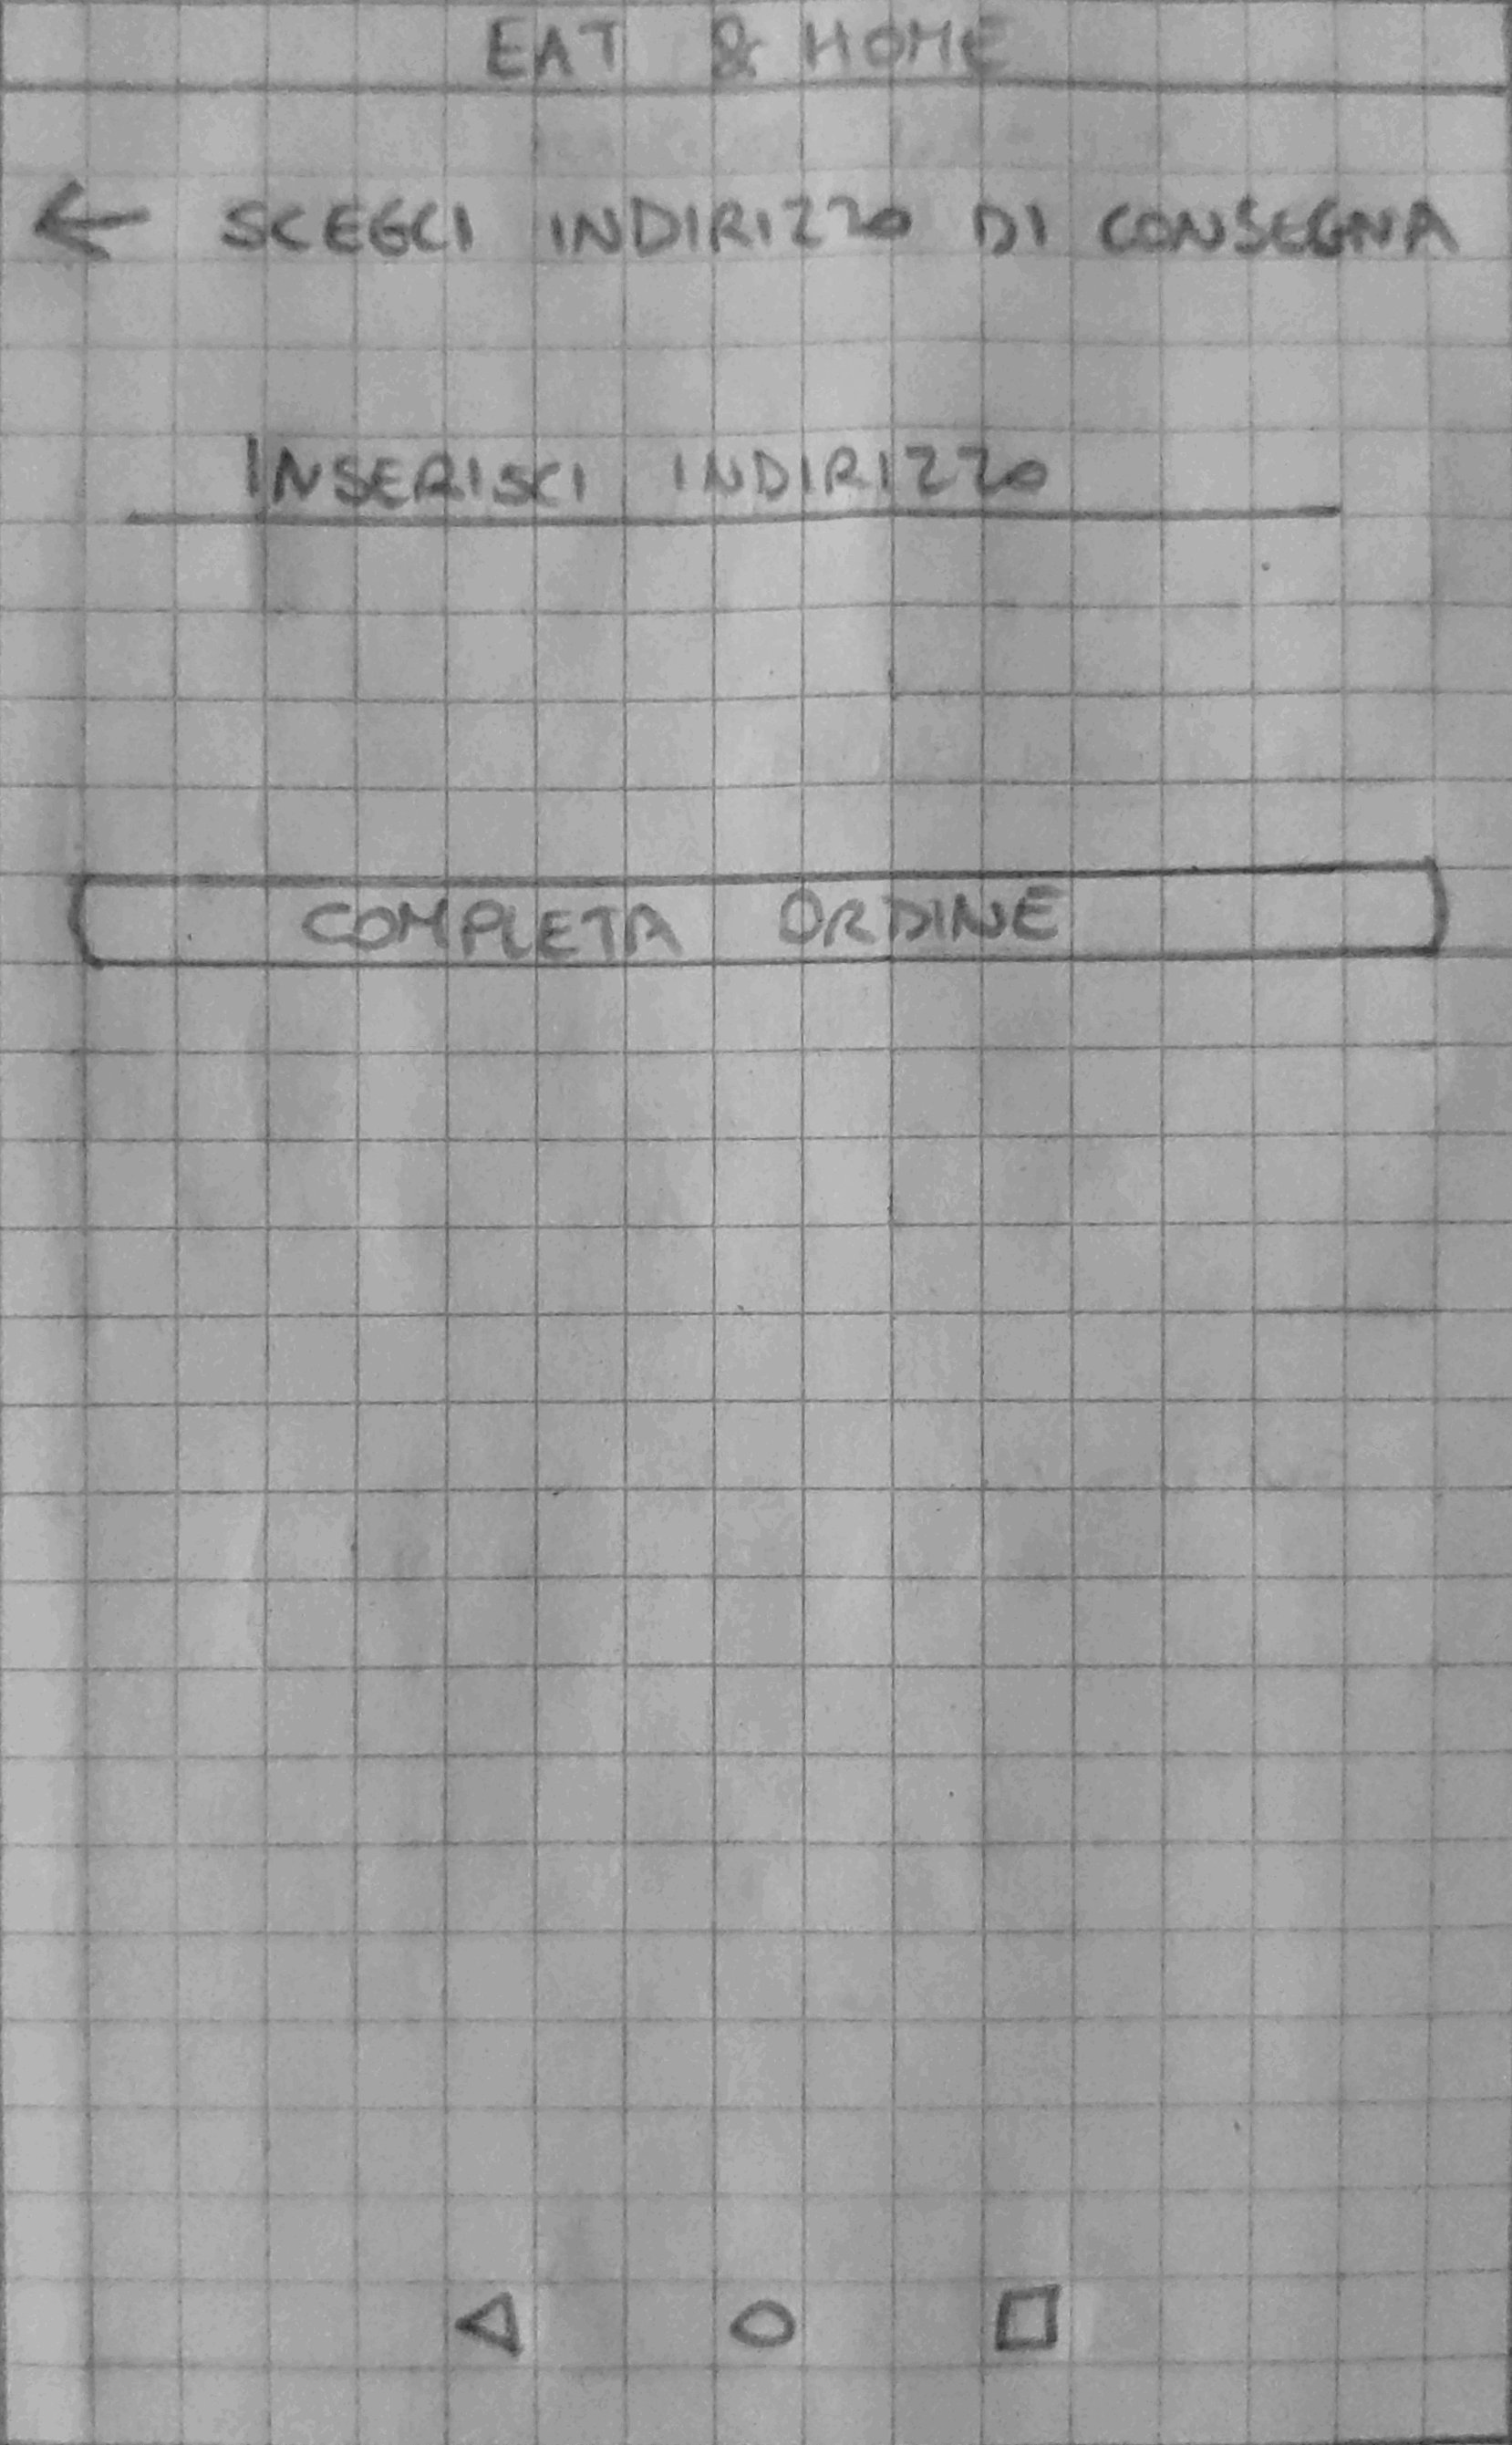 EAT & HOME
← SCEGLI INDIRIZZO DI CONSEGNA
INSERISCI INDIRIZZO
COMPLETA ORDINE